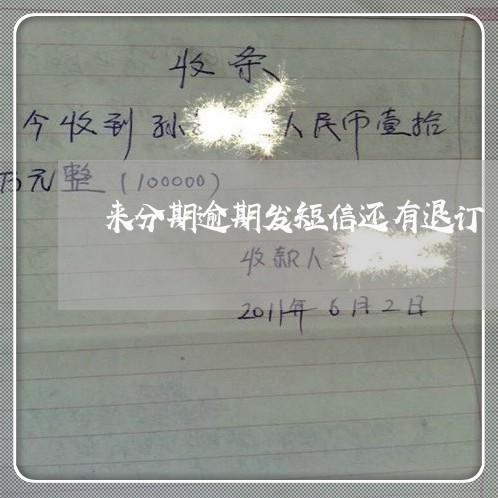 收条
今收到孙 人民币壹拾
万元整(100000)
来分期逾期发短信还有退订
收款人
2011年6月2日